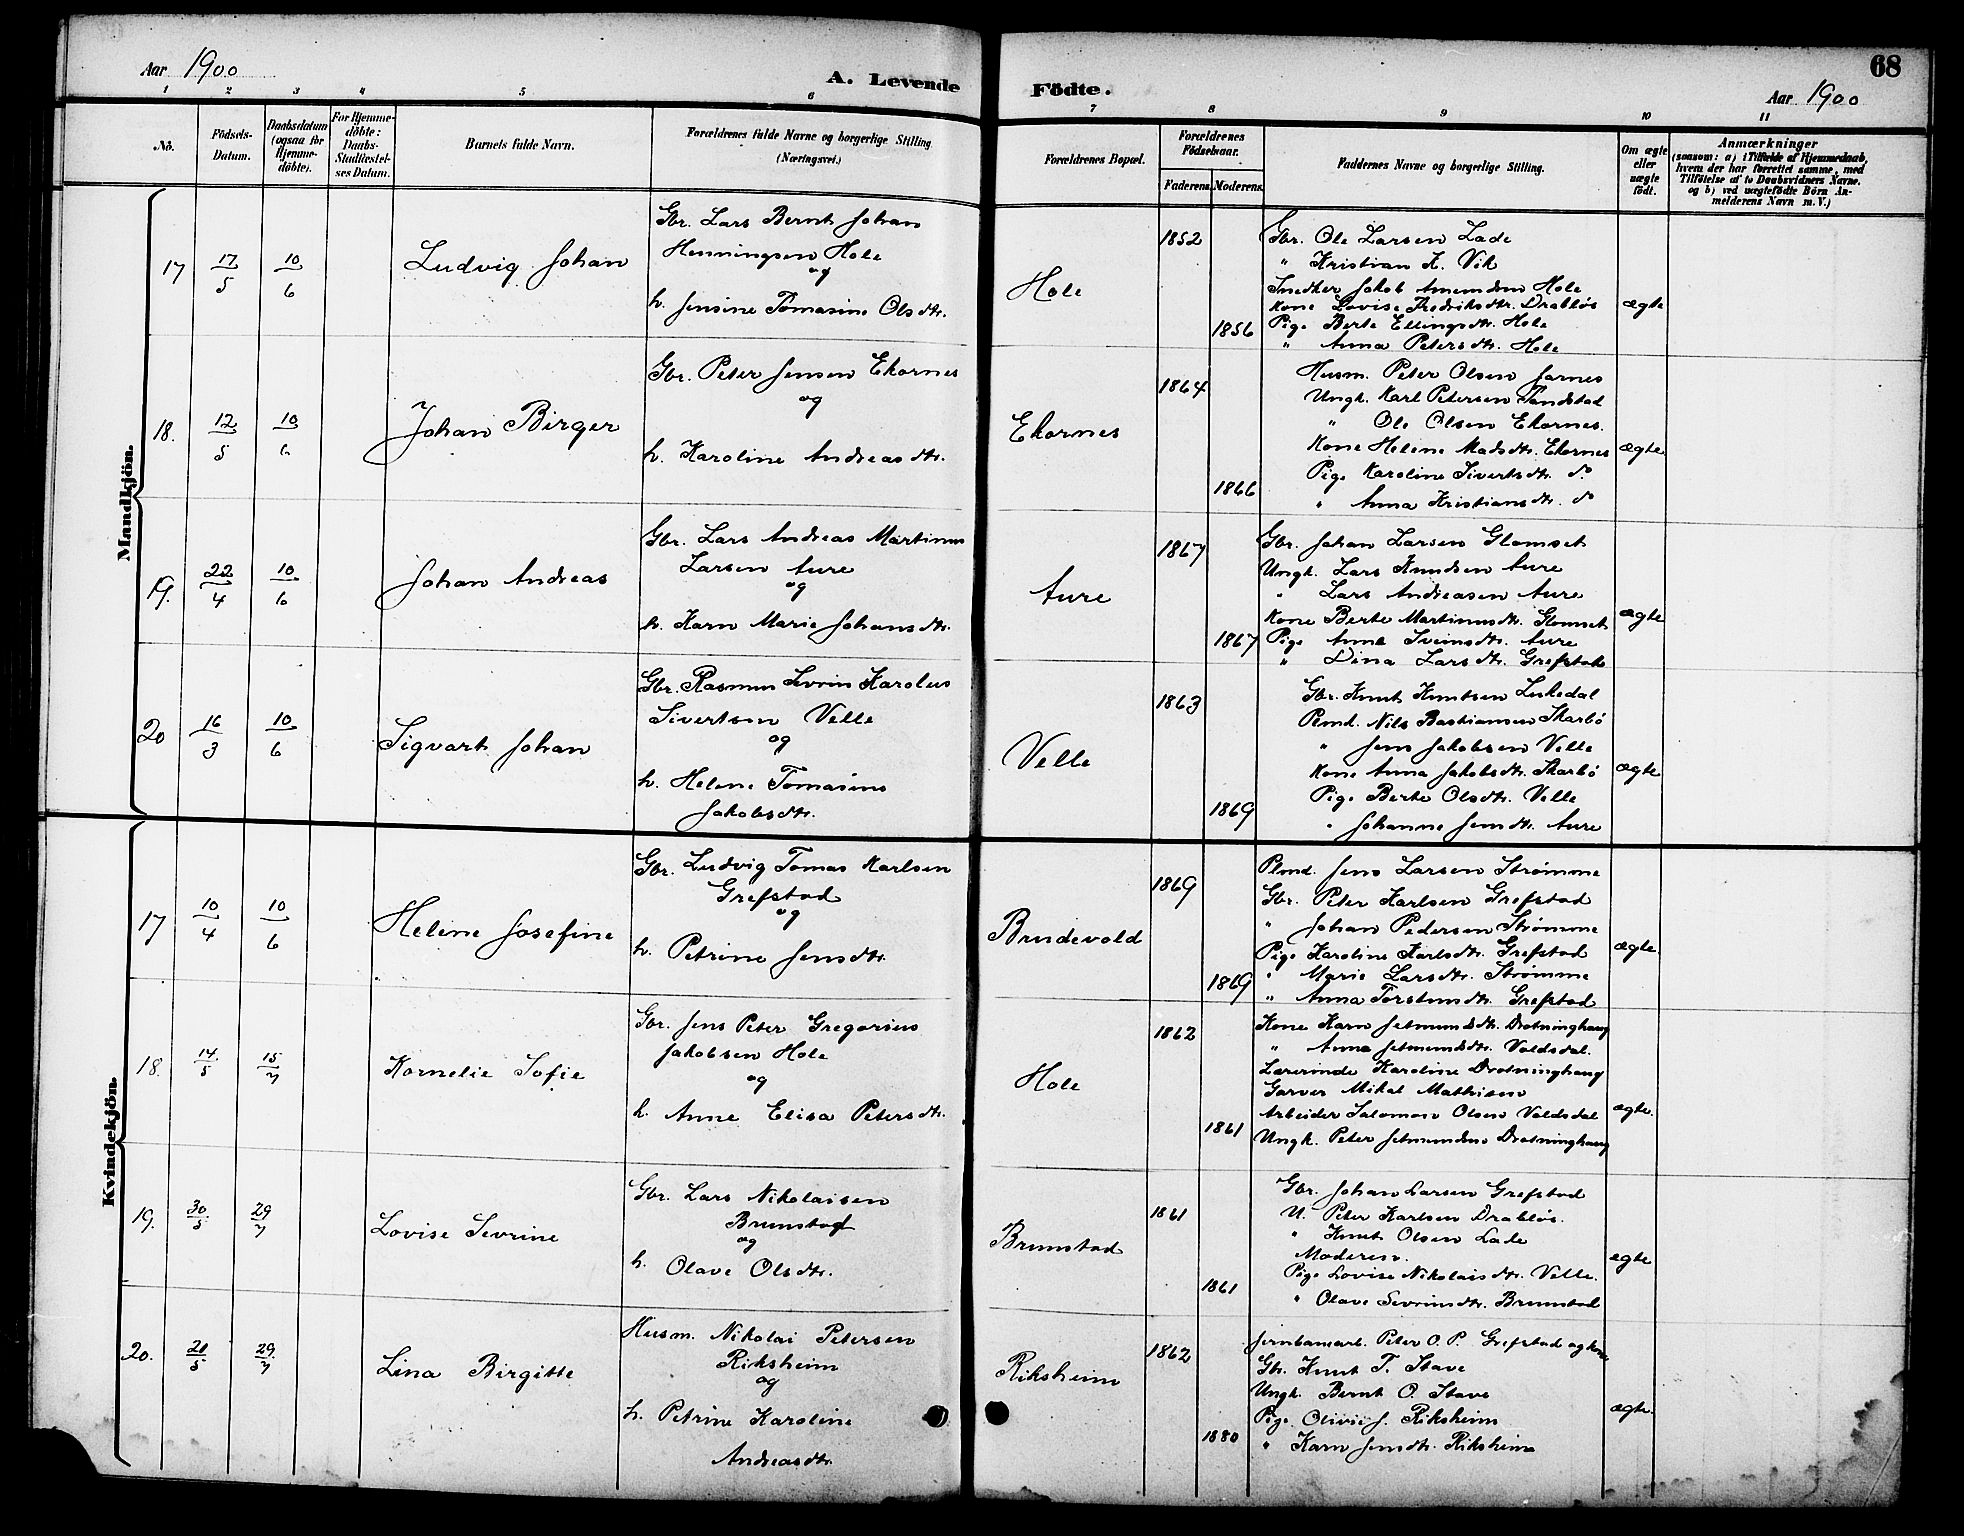 68
Aar 1900
A. Levende Födte.
Aar 1900
1 2 3 4 5 6 7 8 9 10 11
No.
Födsels-
Datum.
Daabsdatum
(ogsaa for
Hjemme-
döbte).
For Hjemme-
döbte:
Daabs-
Stadfæstel-
ses Datum.
Barnets fulde Navn.
Forældrenes fulde Navne og borgerlige Stilling
(Næringsvei.)
Forældrenes Bopæl.
Forældrenes
Födselsaar.
Faderens. Moderens.
Faddernes Navne og borgerlige Stilling.
Om ægte
eller
uægte
födt.
Anmærkninger
(saasom: a) i Tilfælde af Hjemmedaab,
hvem der har forrettet samme, med
Tilföielse af to Daabsvidners Navne.
og b) ved uægtefödte Börn An-
melderens Navn m. V.)
Mandkjön.
17 17/5 10/6 Ludvig Johan
Gbr. Lars Bernt Johan
Henningsen Hole
og
h. Jensine Tomasine Olsdtr.
Hole
1852
1856
Gbr. Ole Larsen Lade
" Kristian K. Vik
Snedker Jakob Amundsen Hole
Kone Lovise Fredriksdtr. Drabløs
Pige Berte Ellingsdtr. Hole
" Anna Petersdtr. Hole
ægte
18. 12/5 10/6 Johan Birger
Gbr. Peter Jensen Ekornes
og
h. Karoline Andreasdtr.
Ekornes
1864
1866
Husm. Peter Olsen Jarnes
Ungk. Karl Petersen Tandstad
" Ole Olsen Ekornes.
Kone Helene Madsdtr. Ekornes
Pige Karoline Sivertsdtr. do
" Anna Kristiansdtr. do
ægte
19. 22/4 10/6 Johan Andreas
Gbr. Lars Andreas Martinus
Larsen Aure
og
h. Karn Marie Johansdtr.
Aure
1867
1867
Gbr. Johan Larsen Glomset
Ungk. Lars Knudsen Aure
" Lars Andreasen Aure
Kone Berte Martinusdtr. Glomset
Pige Anna Aure
" Dina Larsdtr. Grefstad
ægte
20 16/3 10/6 Sigvart Johan
Gbr. Rasmus Sevrin Karolus
Sivertsen Velle
og
h. Helene Tomasine
Jakobsdtr.
Velle
1863
1869
Gbr. Knut Knutsen
Plmd. Nils Bastiansen Skarbø
" Jens Jakobsen Velle
Kone Anna Jakobsdtr. Skarbø
Pige Berte Olsdtr. Velle
" Johanne Jensdtr. Aure
ægte
Kvindekjön.
17 10/4 10/6 Helene Josefine
Gbr. Ludvig Tomas Karlsen
Grefstad
og
h. Petrine Jensdtr.
Brudevold
1869
1869
Plmd. Jens Larsen Strømme
Gbr. Peter Karlsen Grefstad
" Johan Pedersen Strømme
Pige Karoline Karlsdtr. Grefstad
" Marie Larsdtr. Strømme
" Anna Torstensdtr. Grefstad
ægte.
18. 14/5 15/7 Kornelie Sofie
Gbr. Jens Peter Gregorius
Jakobsen Hole
og
h. Anne Elisa Petersdtr.
Hole
1862
1861
Kone Karn Jetmundsdtr. Drotninghaug
" Anna Jetmundsdtr. Valdsdal.
Lærerinde Karoline Drotninghaug
Garver Mikal Mathisen
Arbeider Salomon Olsen Valdsdal
Ungk. Peter Jetmundsen Drotninghaug
ægte.
19. 30/5 29/7 Lovise Sevrine
Gbr. Lars Nikolaisen
Brunstad
og
h. Olave Olsdtr.
Brunstad
1861
1861
Gbr. Johan Larsen Grefstad
U. Peter Karlsen Drabløs.
" Knut Olsen Lade
Moderen.
Pige Lovise Nikolaisdtr. Velle.
" Olave Sevrinsdtr. Brunstad
ægte
20. 20/5 29/7 Lina Birgitte
Husm. Nikolai Petersen
Riksheim
og
h. Petrine Karoline
Andreasdtr.
Riksheim
1862
1880
Jernbanearb. Peter O. P. Grefstad og kone
Gbr. Knut T. Stave
Ungk. Bernt O. Stave
Pige Olivie J. Riksheim
" Karn Jensdtr. Riksheim
ægte.